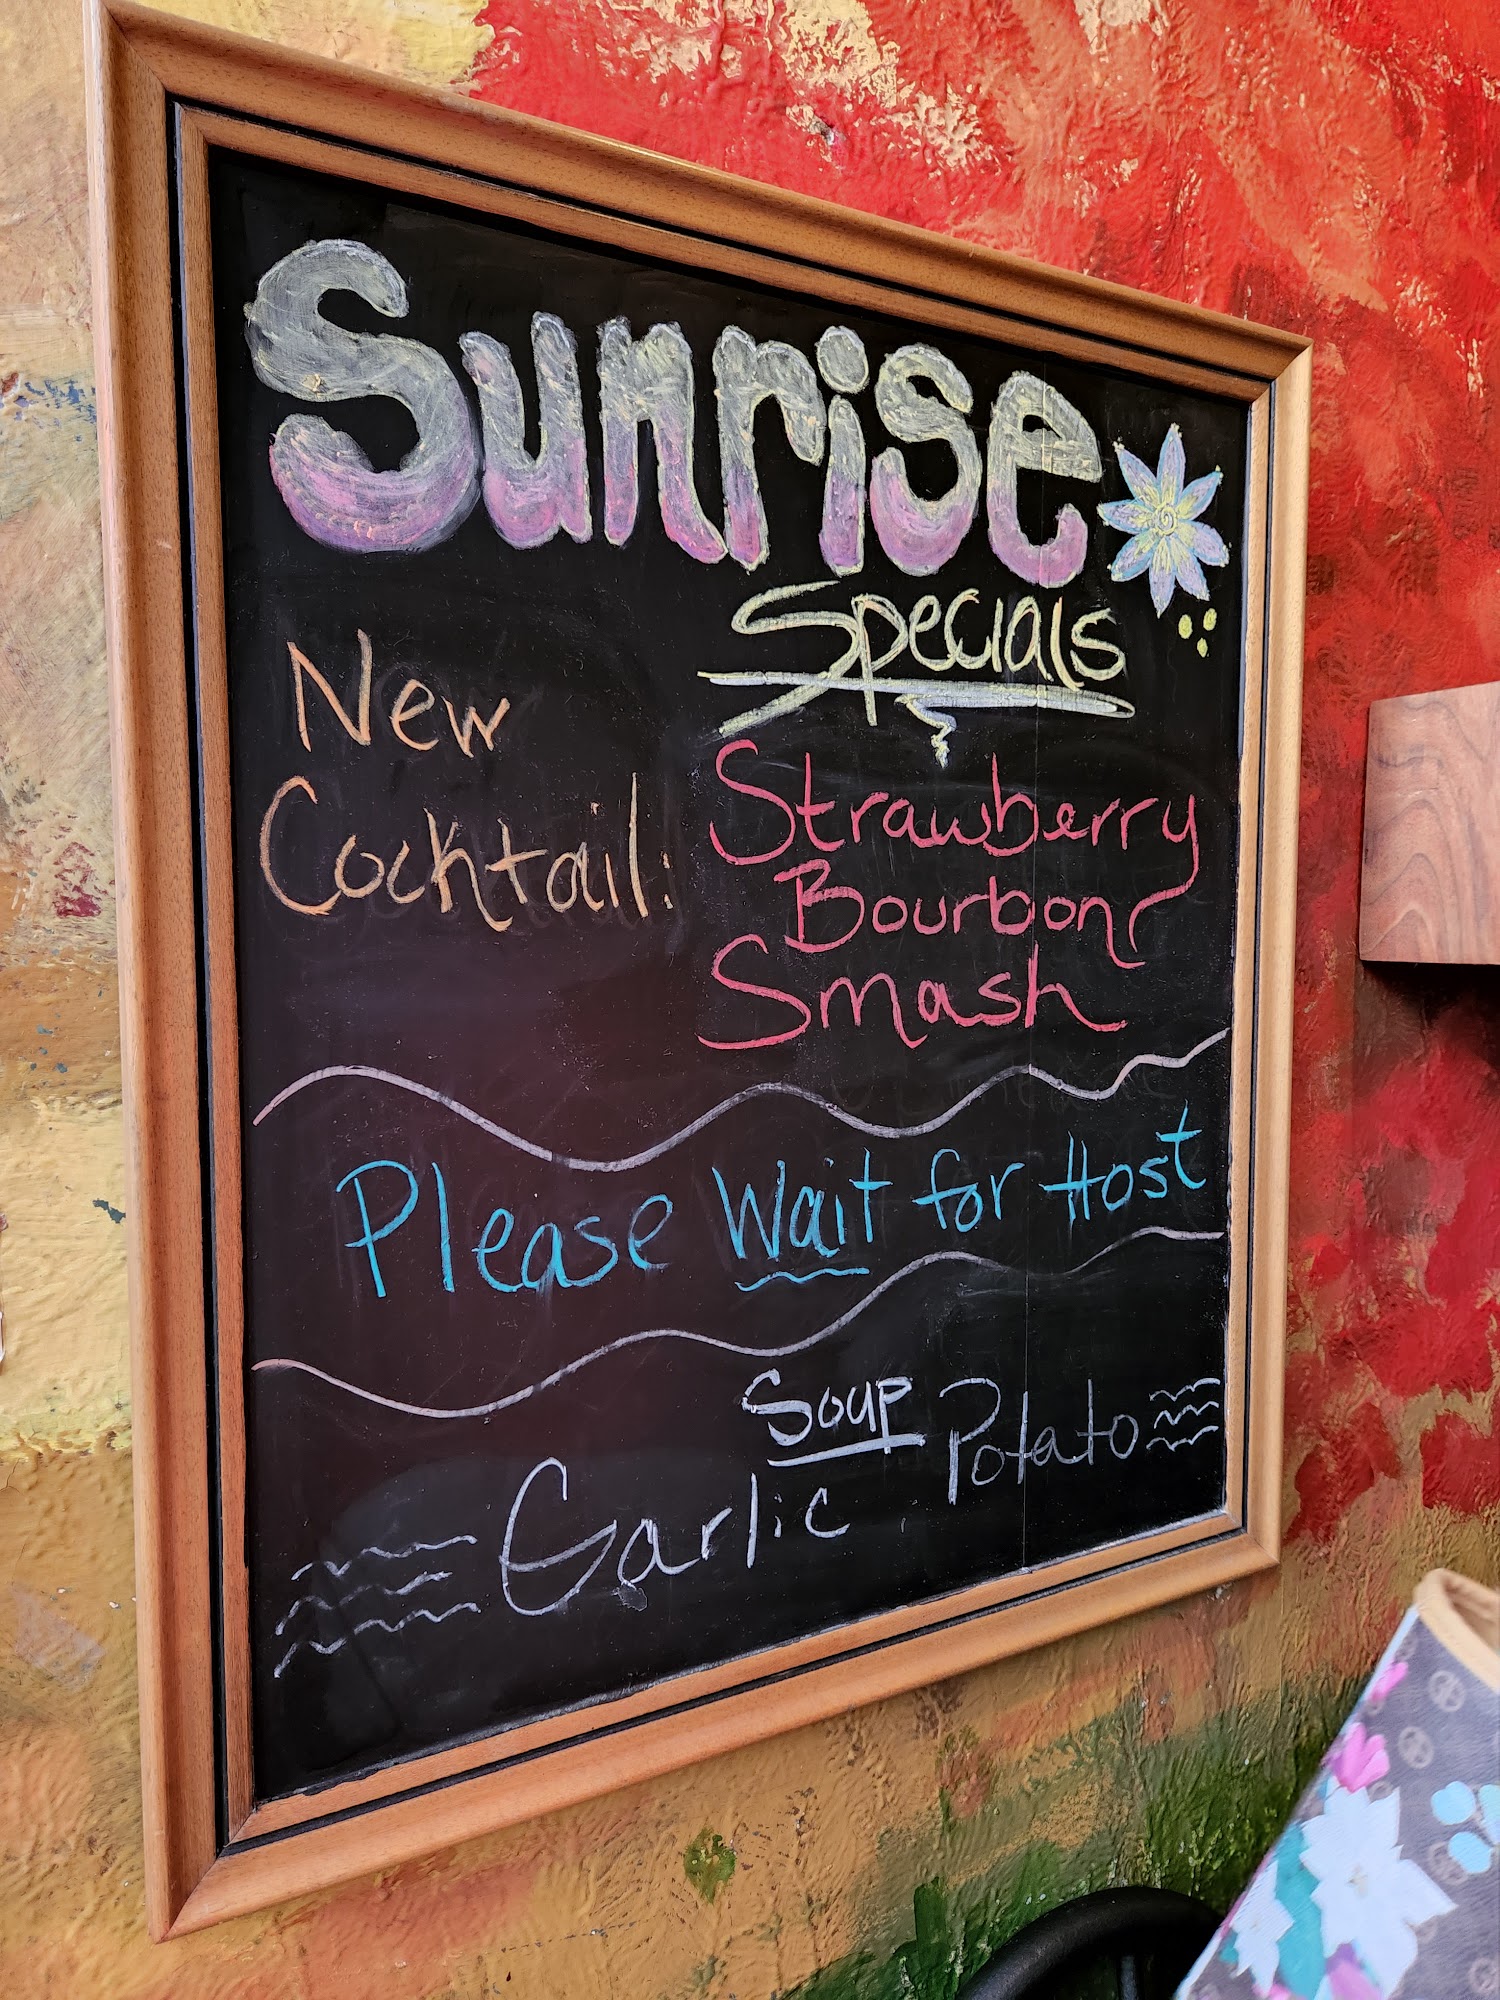 Sunrise
Specials
New
Cocktail:
Strawberry
Bourbon
Smash
Please Wait for Host
Soup
Garlic Potato